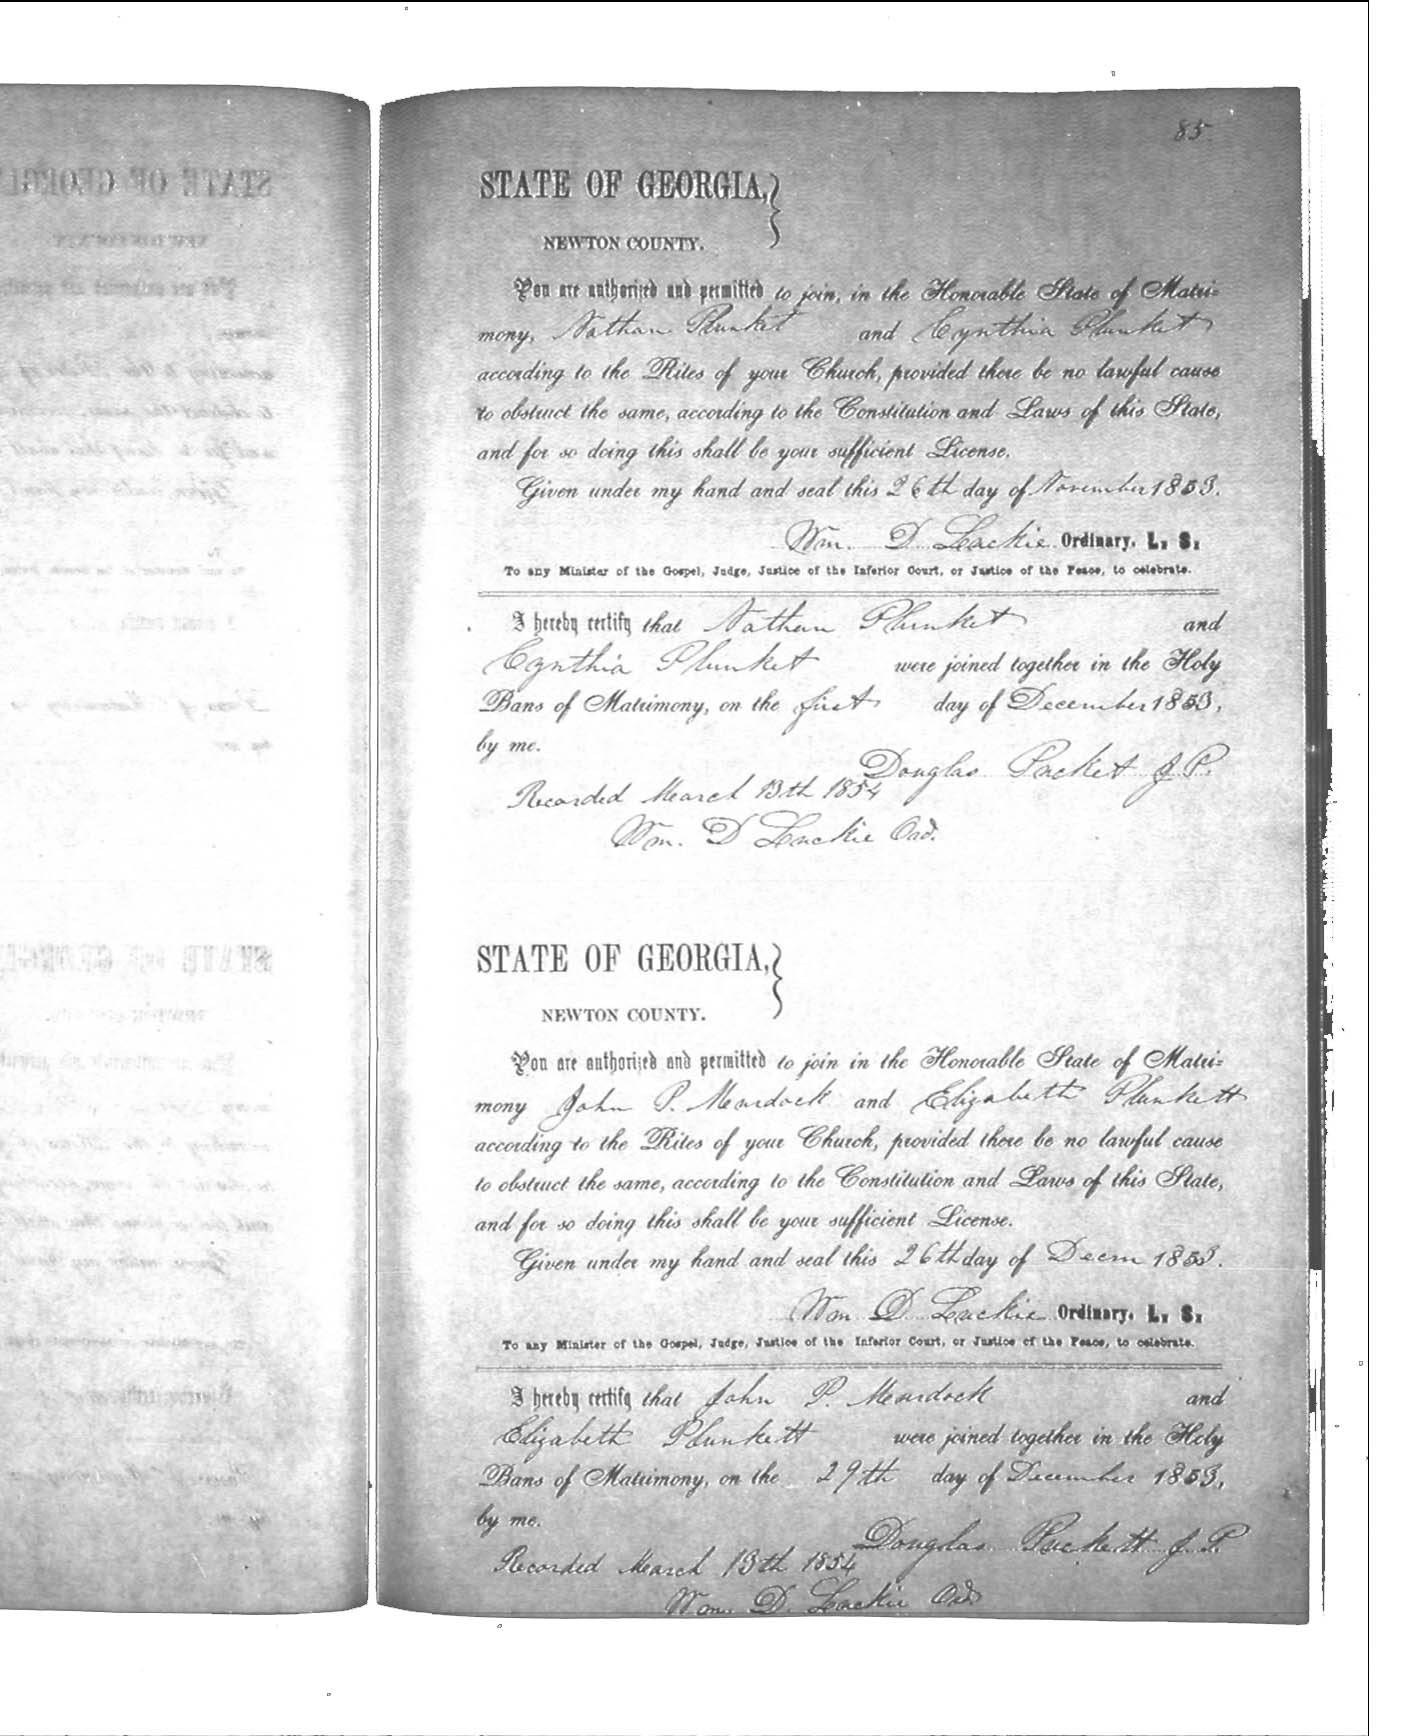 85
STATE OF GEORGIA,
NEWTON COUNTY.
You are authorized and permitted to join, in the Honorable State of Matri-
mony, Nathan Plunket and Cynthia Plunket
according to the Rites of your Church, provided there be no lawful cause
to obstruct the same, according to the Constitution and Laws of this State,
and for so doing this shall be your sufficient License.
Given under my hand and seal this 26th day of November 1853.
Wm. D Luckie Ordinary, L. S.
To any Minister of the Gospel, Judge, Justice of the Inferior Court, or Justice of the Peace, to celebrate.
I hereby certify that Nathan Plunket and
Cynthia Plunket were joined together in the Holy
Bans of Matrimony, on the first day of December 1853,
by me.
Douglas Pucket J.P.
Recorded March 13th 1854
Wm. D Luckie Ord.
STATE OF GEORGIA,
NEWTON COUNTY.
You are authorized and permitted to join in the Honorable State of Matri-
mony John P. Murdock and Elizabeth Plunkett
according to the Rites of your Church, provided there be no lawful cause
to obstruct the same, according to the Constitution and Laws of this State,
and for so doing this shall be your sufficient License.
Given under my hand and seal this 26th day of Decem 1853.
Wm D Luckie Ordinary, L. S.
To any Minister of the Gospel, Judge, Justice of the Inferior Court, or Justice of the Peace, to celebrate.
I hereby certify that John P. Murdock and
Elizabeth Plunkett were joined together in the Holy
Bans of Matrimony, on the 29th day of December 1853,
by me.
Douglas Puckett J.P.
Recorded March 13th 1854
Wm. D. Luckie Ord